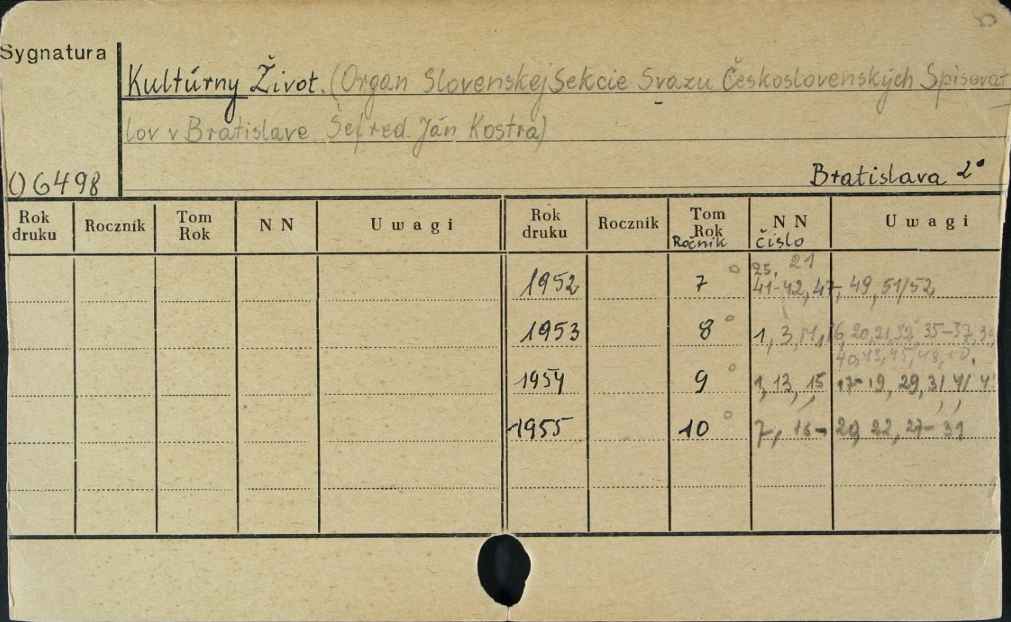 Sygnatura
Kultúrny Život. (Organ Slovenskej Sekcie Svazu Československých Spisovat
lov v Bratislave Šéfred. Ján Kostra)
O 6498
Bratislava 2°
Rok druku Rocznik Tom Rok N N Uwagi Rok druku Rocznik Tom Rok N N Uwagi
Ročnik číslo
25, 21
1952 7° 41-42, 47, 49, 51/52
1953 8° 1, 3, 20, 35-37,
40, 43, 45, 48,
1954 9° 1, 13, 15 29, 31
1955 10° 7, 22, 27-31